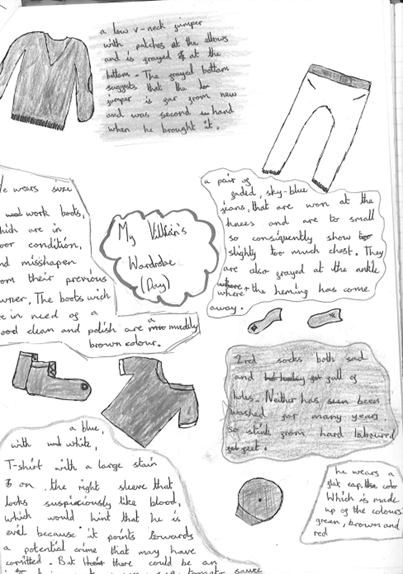 a low v-neck jumper
with patches at the elbows
and is grayed at the
bottom. The grayed bottom
suggests that the
jumper is gar grom new
and was second in hand
when he brought it.
a pair of
gaded, sky-blue
jeans, that are worn at the
knees and are to small
so consiquently show
slightly too much chest. They
are also grayed at the ankle
where the heming has come
away.
My Villian's
Wardrobe
(Day)
e wears
work boots,
which are in
oor condition,
nd misshapen
om their previous
wner. The boots wich
re in need of a
ood clean and polish are a muddy
brown colour.
2 red socks both sad
and gull of
holes. Neither has been
washed gor many years
so stink grom hard laboured
geet.
a blue,
with white,
T-shirt with a large stain
on the right sleeve that
looks suspisciously like blood,
which would hint that he is
evil because it points towards
a potential crime that may have
comitted. But there could be an
tomato sauce
he wears a
glat cap.
Which is made
up of the colours
green, brown and
red